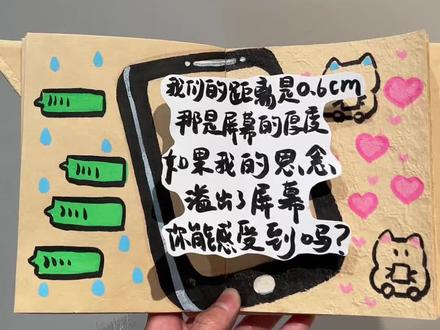 我们的距离是0.6cm
那是屏幕的厚度
如果我的思念
溢出了屏幕
你能感受到吗?